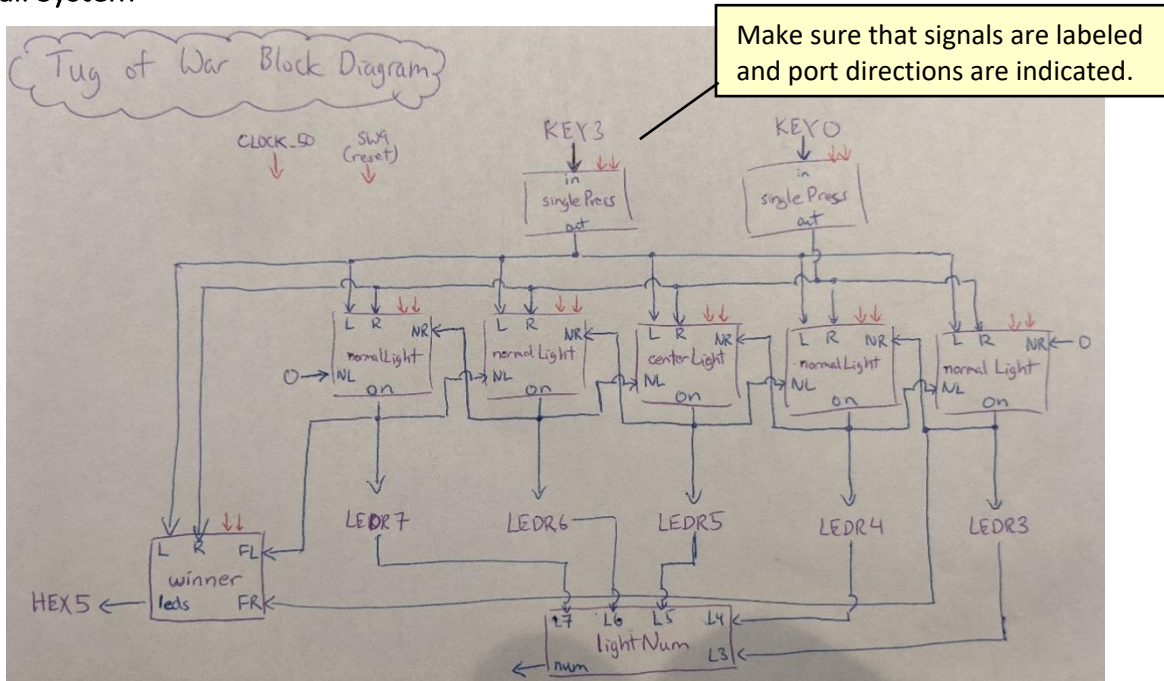 Make sure that signals are labeled
and port directions are indicated.
Tug of War Block Diagram
CLOCK_50
SW9
(reset)
KEY3
KEY0
in
singlePress
out
in
singlePress
out
L R NR
normalLight
0 NL
on
L R NR
normalLight
NL
on
L R NR
centerLight
NL
on
L R NR
normalLight
NL
on
L R NR 0
normalLight
NL
on
LEDR7
LEDR6
LEDR5
LEDR4
LEDR3
L R FL
winner
HEX5 leds FR
L7 L6 L5 L4
lightNum
L3
num